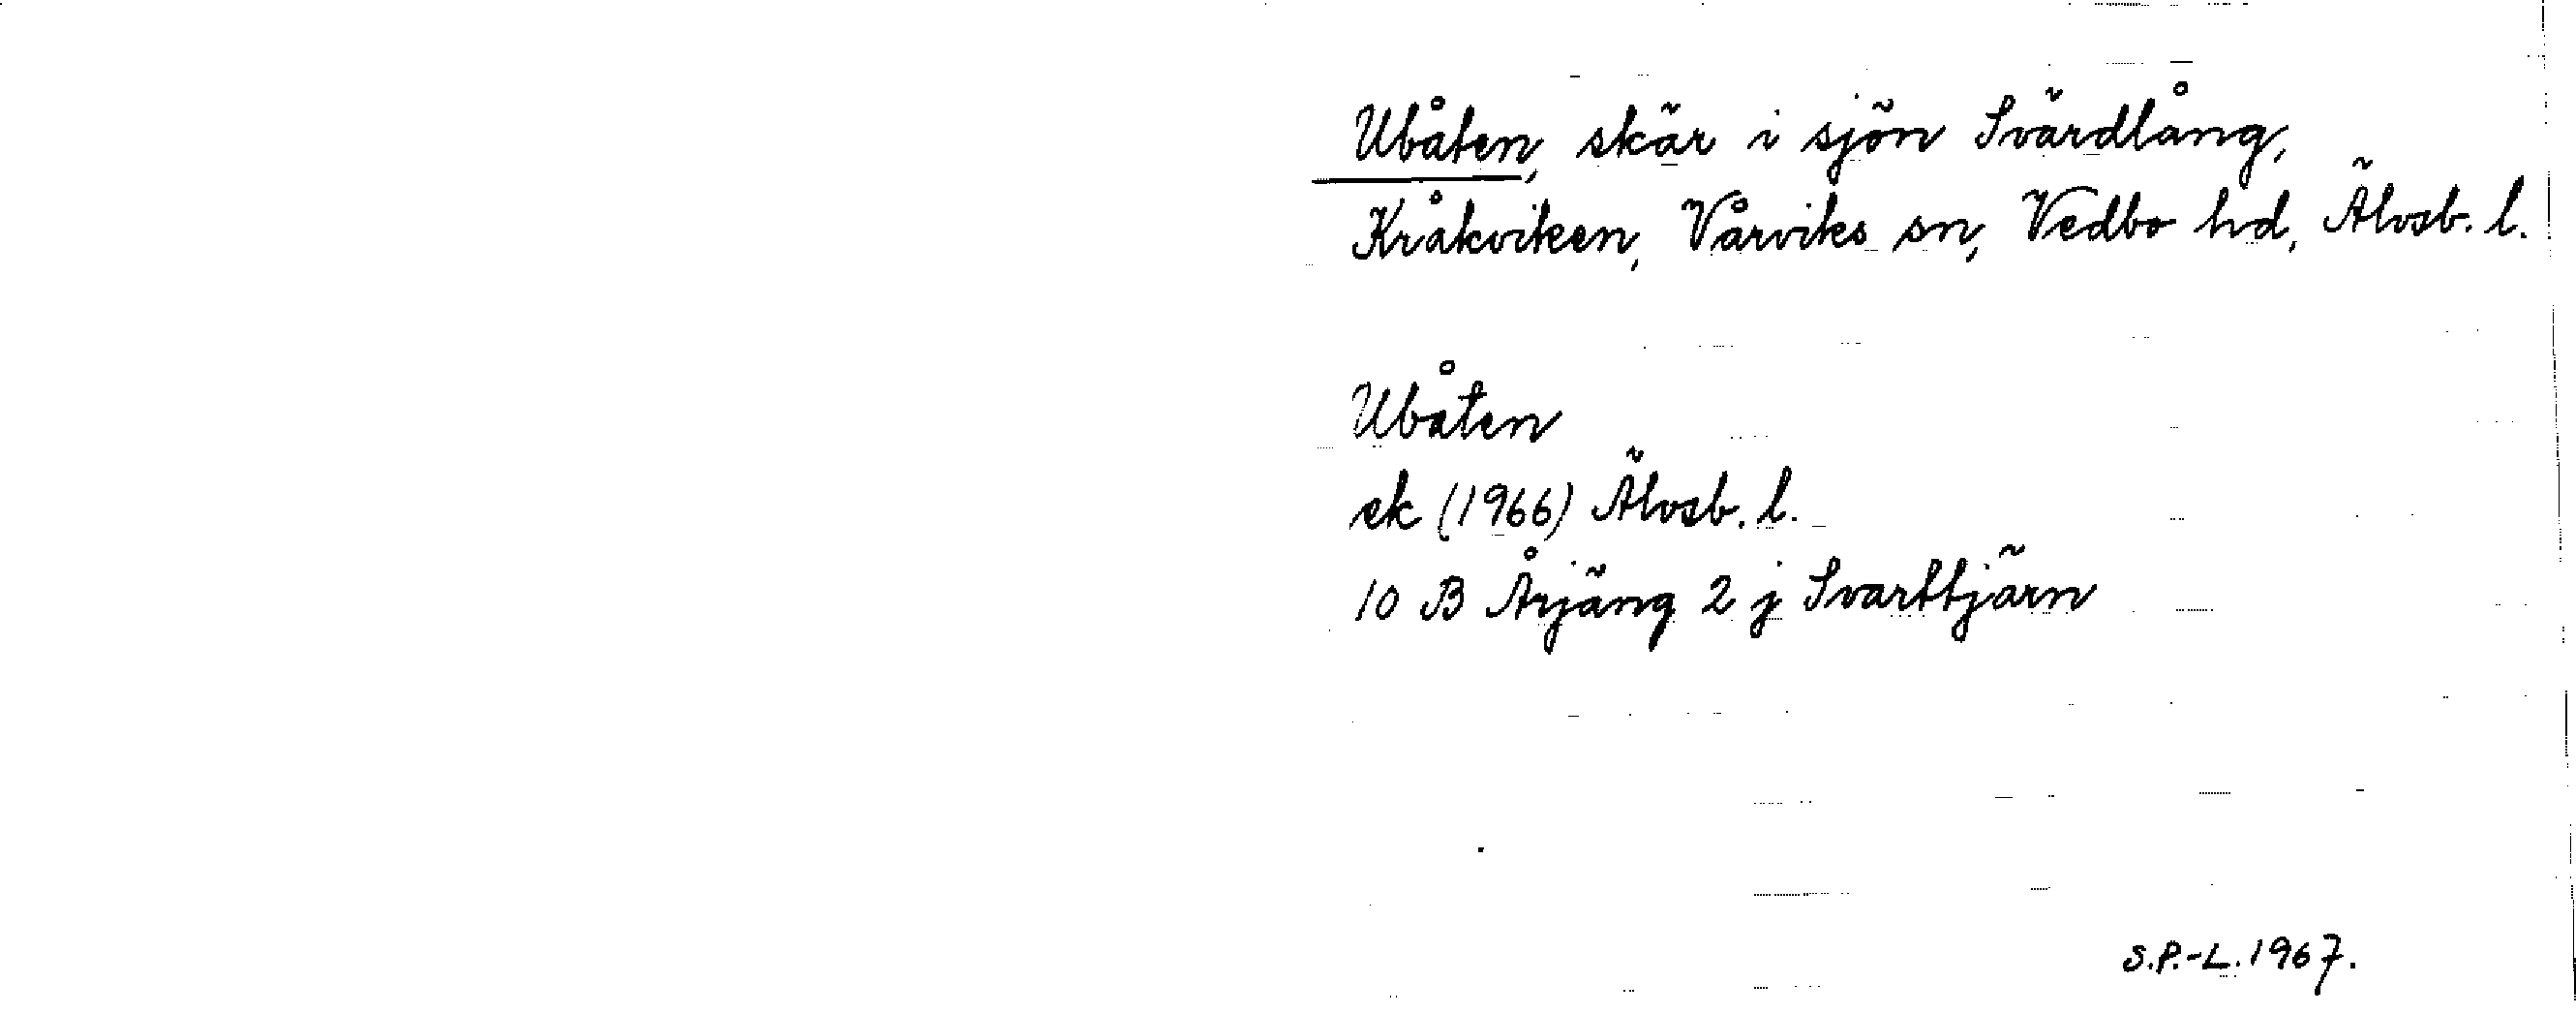 Ubåten, skär i sjön Svärdlång,
Kråkviken, Vårviks sn, Vedbo hd, Älvsb. l.
Ubåten
ek (1966) Älvsb. l.
10 B Årjäng 2 j Svarttjärn
S.P.-L. 1967.